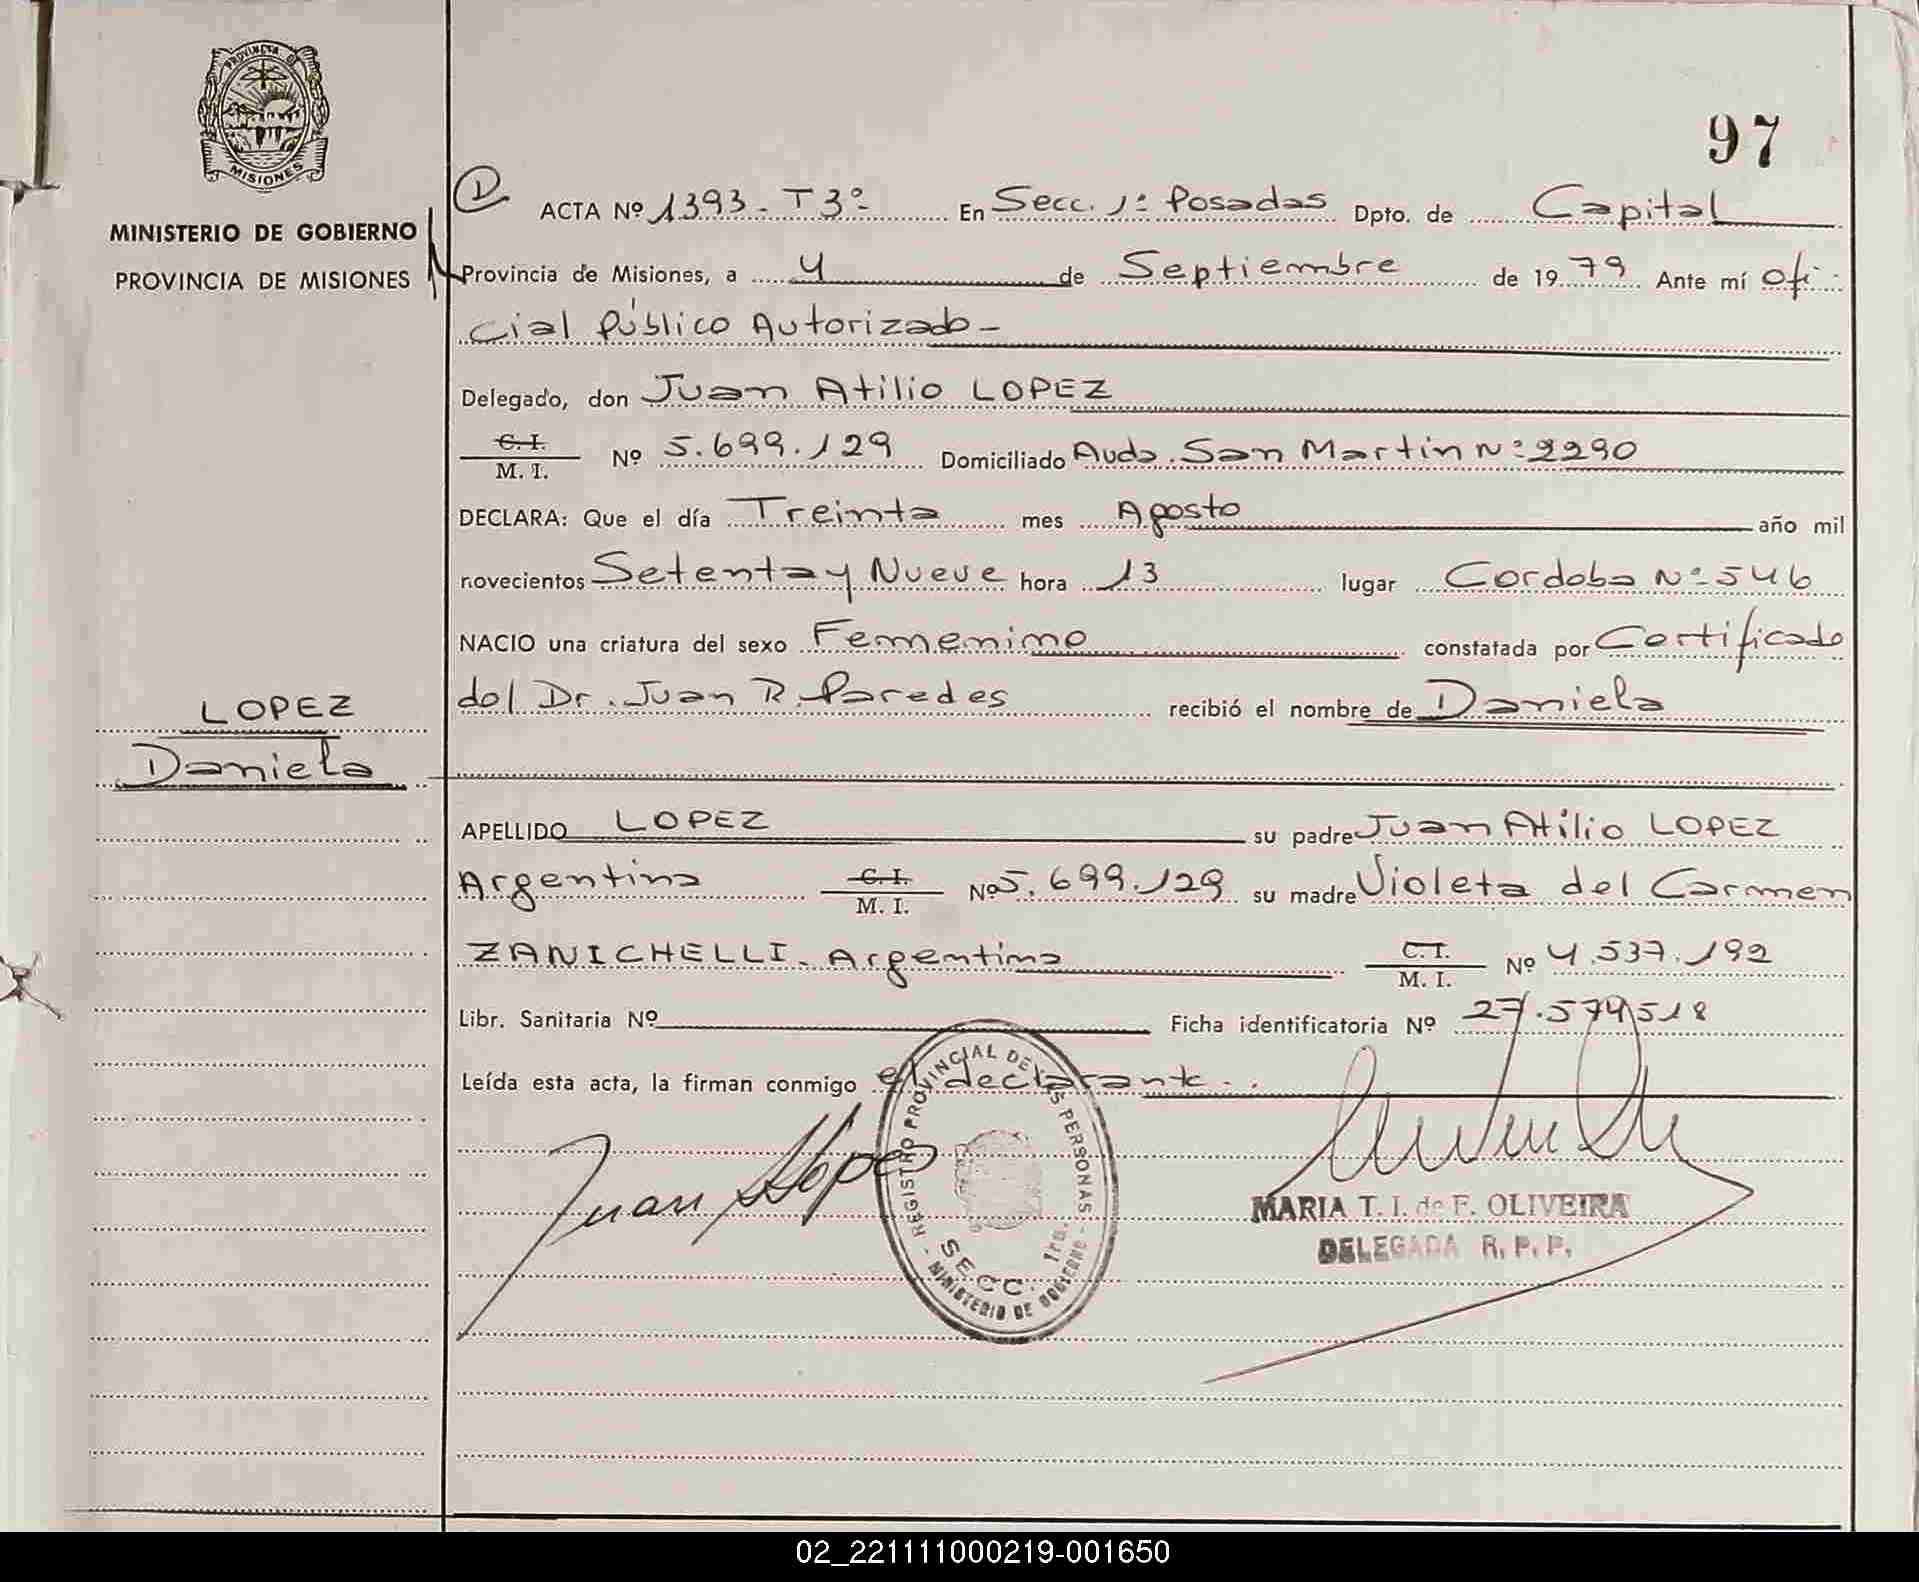 PROVINCIA DE
MISIONES
97
MINISTERIO DE GOBIERNO
PROVINCIA DE MISIONES
ACTA Nº 1393 - T 3º En Secc. 1ª Posadas Dpto. de Capital
Provincia de Misiones, a 4 de Septiembre de 1979 Ante mí Ofi-
cial Público Autorizado -
Delegado, don Juan Atilio LOPEZ
C. I.
M. I. Nº 5.699.129 Domiciliado Avda. San Martin Nº 2290
DECLARA: Que el día Treinta mes Agosto año mil
novecientos Setenta y Nueve hora 13 lugar Cordoba Nº 546
NACIO una criatura del sexo Femenino constatada por Certificado
del Dr. Juan R. Paredes recibió el nombre de Daniela
LOPEZ
Daniela
APELLIDO LOPEZ su padre Juan Atilio LOPEZ
Argentina C. I.
M. I. Nº 5.699.129 su madre Violeta del Carmen
ZANICHELLI. Argentina C. I.
M. I. Nº 4.537.192
Libr. Sanitaria Nº Ficha identificatoria Nº 27.574518
Leída esta acta, la firman conmigo el declarante.
Juan Lópe
REGISTRO PROVINCIAL DE LAS PERSONAS
SECC. 1ra.
MINISTERIO DE GOBIERNO
MARIA T. I. de F. OLIVEIRA
DELEGADA R. P. P.
02_221111000219-001650